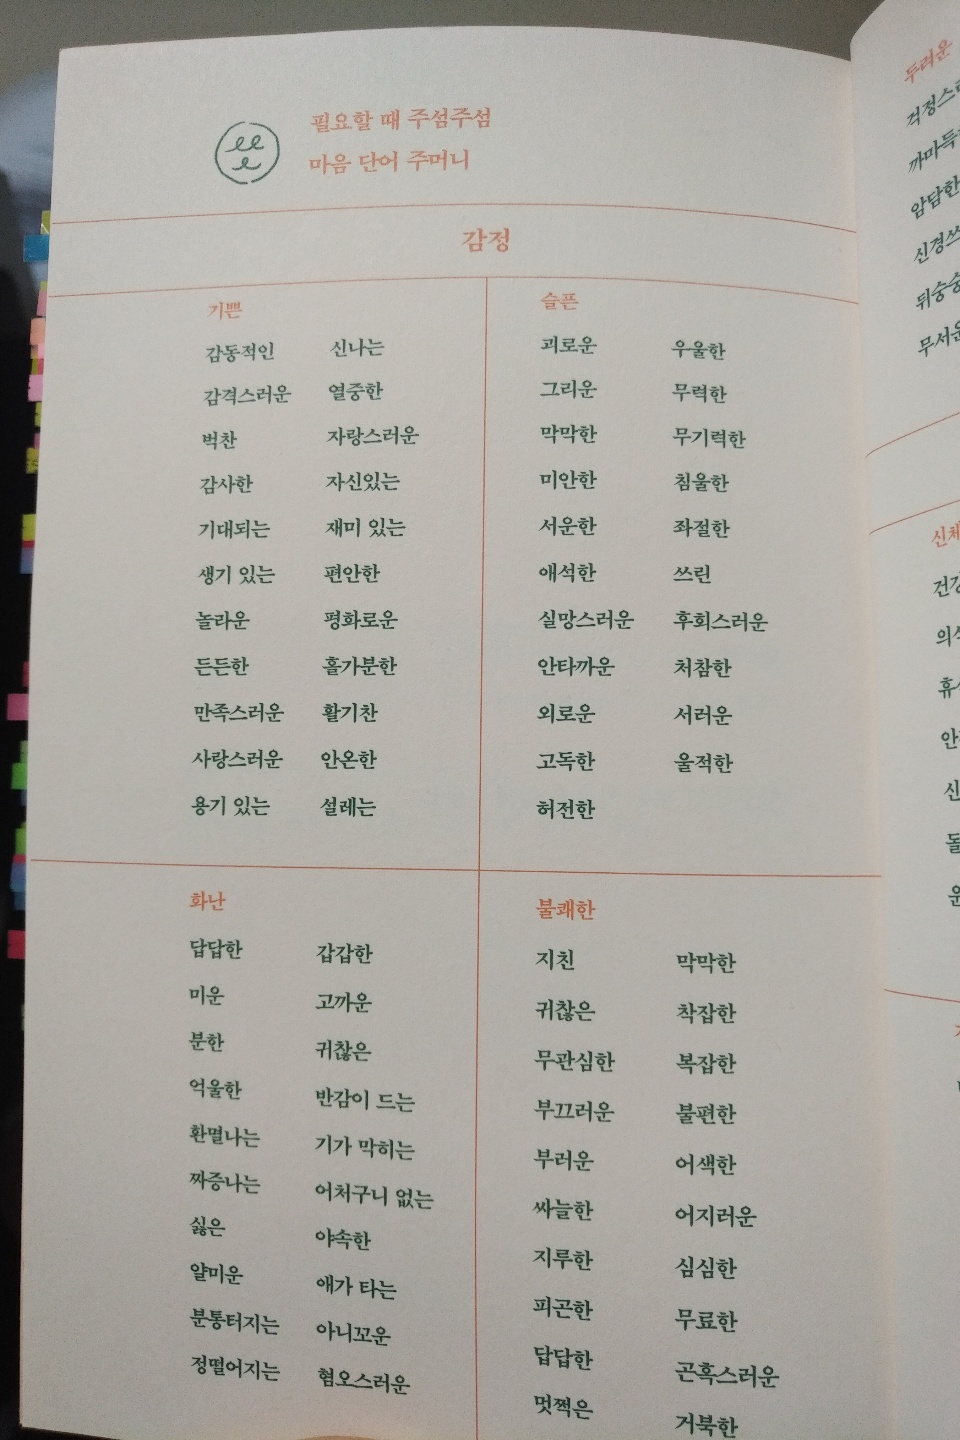 필요할 때 주섬주섬
마음 단어 주머니
감정
기쁜
감동적인 신나는
감격스러운 열중한
벅찬 자랑스러운
감사한 자신있는
기대되는 재미 있는
생기 있는 편안한
놀라운 평화로운
든든한 홀가분한
만족스러운 활기찬
사랑스러운 안온한
용기 있는 설레는
슬픈
괴로운 우울한
그리운 무력한
막막한 무기력한
미안한 침울한
서운한 좌절한
애석한 쓰린
실망스러운 후회스러운
안타까운 처참한
외로운 서러운
고독한 울적한
허전한
화난
답답한 갑갑한
미운 고까운
분한 귀찮은
억울한 반감이 드는
환멸나는 기가 막히는
짜증나는 어처구니 없는
싫은 야속한
얄미운 애가 타는
분통터지는 아니꼬운
정떨어지는 혐오스러운
불쾌한
지친 막막한
귀찮은 착잡한
무관심한 복잡한
부끄러운 불편한
부러운 어색한
싸늘한 어지러운
지루한 심심한
피곤한 무료한
답답한 곤혹스러운
멋쩍은 거북한
두려운
암담한